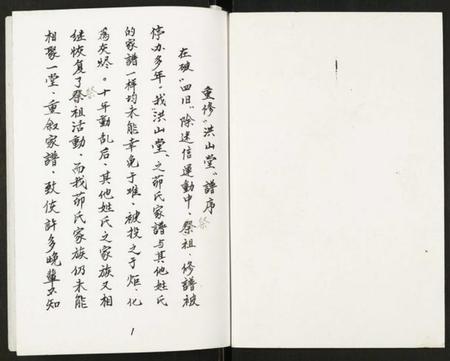 重修"洪山堂"谱序
在破"四旧"除迷信运动中、祭祖、修譜被
停办多年。我洪山堂、之茆氏家譜与其他姓氏
的家譜一样均未能幸免于难、被投之于炬、化
為灰烬。十年動乱后、其他姓氏之家族又相
继恢复了祭祖活動、而我茆氏家族仍未能
相聚一堂、重叙家譜、致使許多晚輩不知
祭
祭
1